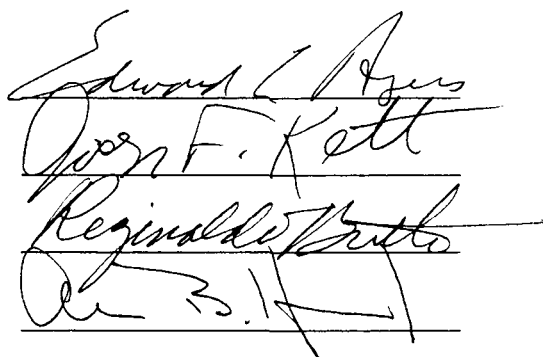 Edward L Ayers
Joseph F. Kett
Reginald Butler
B.